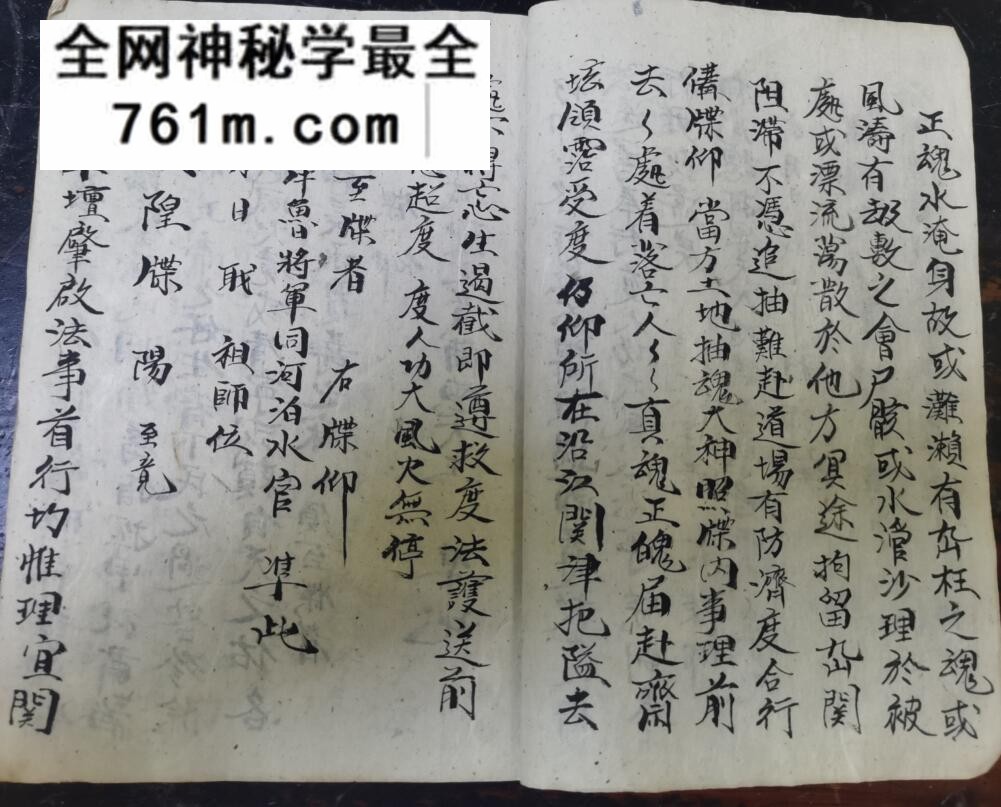 全网神秘学最全
761m.com
正魂水淹身故或灘瀬有屈枉之魂或
風濤有劫数之會尸骸或水澢沙理於被
處或漂流蕩散於他方冥途拘留匝関
阻滯不憑追抽難赴道場有防濟度合行
俻牒仰 當方土地抽魂大神照牒内事理前
去々處着落亡人々真魂正魄届赴齋
壇領露受度仍仰所在沿江関津把隘去
處不得忘生遏截即遵救度法護送前
超度 度人功大風火無停
至牒者 右牒仰
魯將軍同河泊水官 準此
日 戢 祖師位
隍牒 陽 至竟
壇肇啟法事首行均惟理宜関